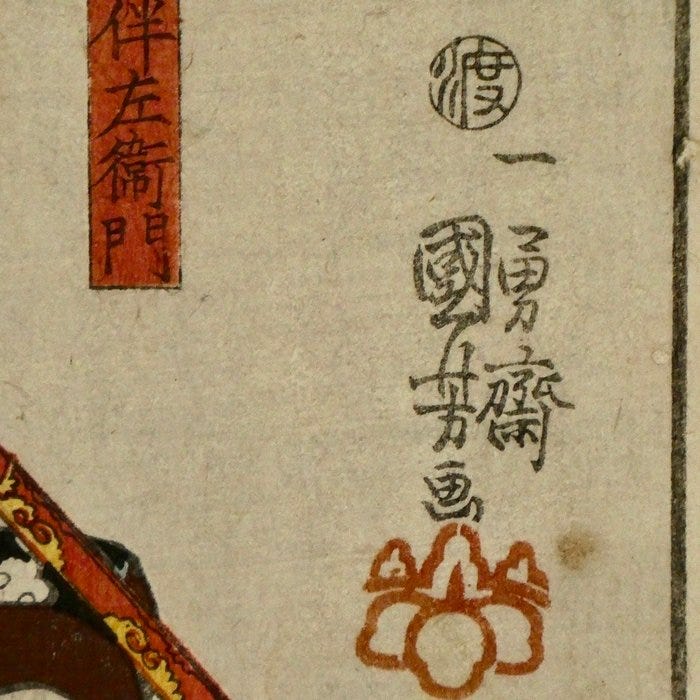 渡
一勇齋
國芳画
伴左衛門